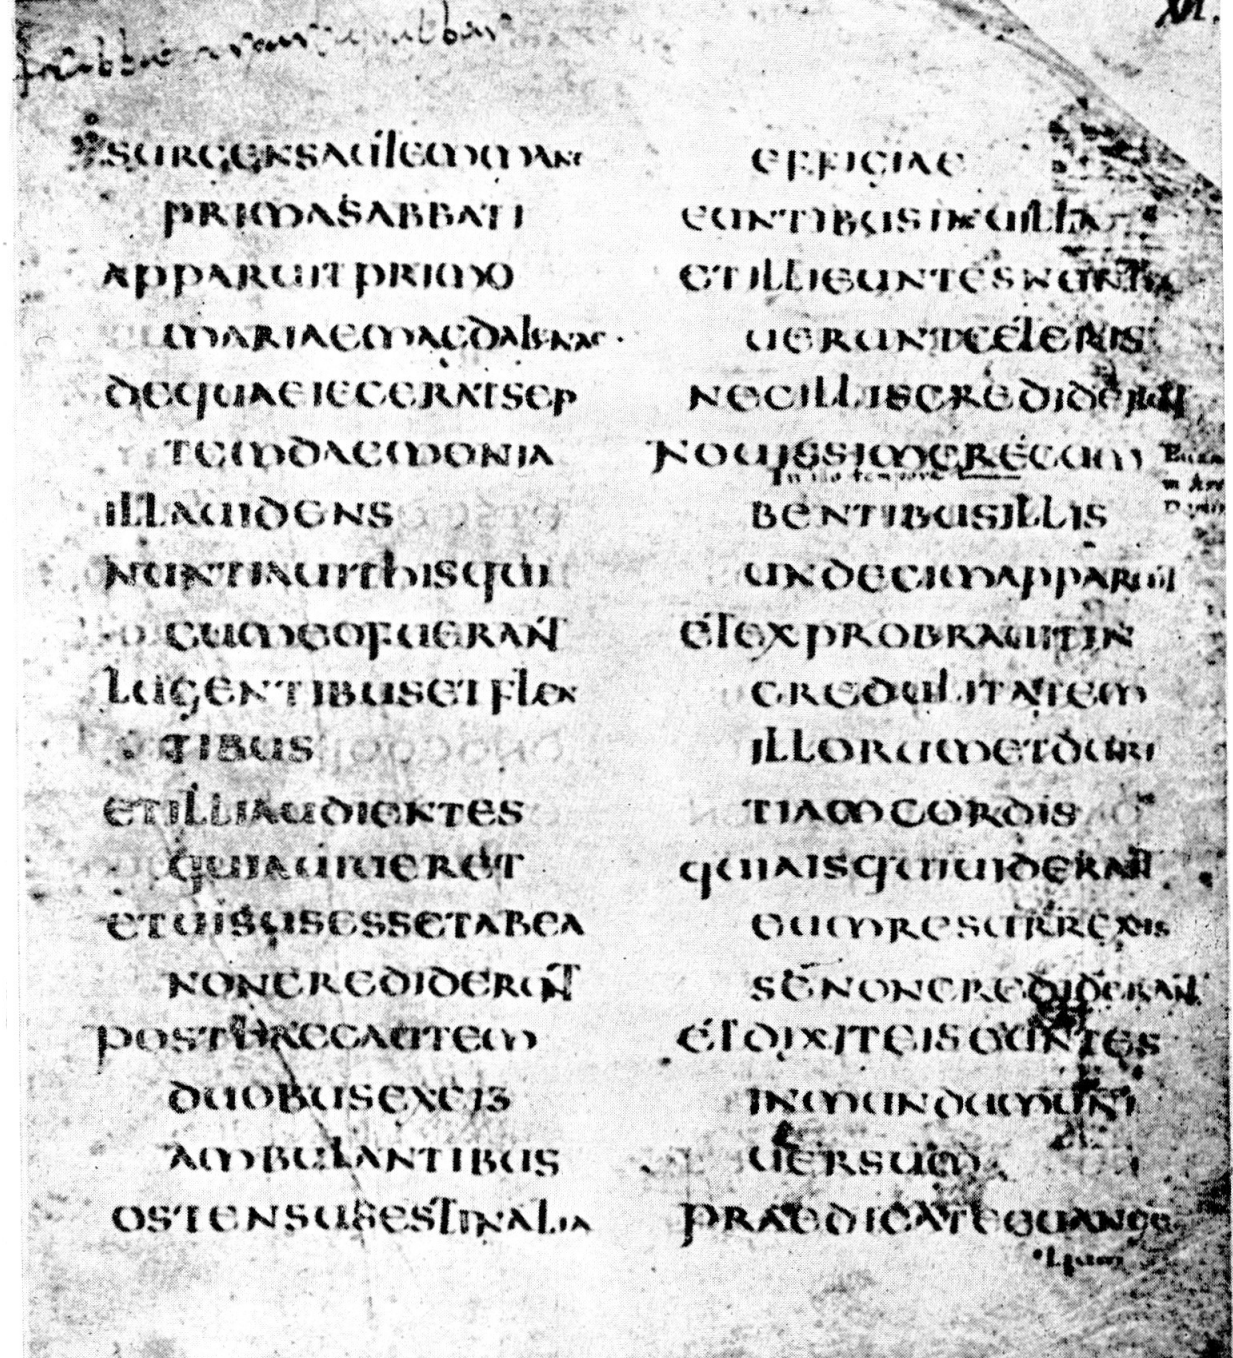 SURGENSAUTEMMANE
PRIMASABBATI
APPARUITPRIMO
MARIAEMAGDALENAE·
DEQUAEIECERATSEP
TEMDAEMONIA
ILLAUIDENS
NUNTIAUITHISQUI
CUMEOFUERANT
LUGENTIBUSETFLEN
TIBUS
ETILLIAUDIENTES
QUIAUIUERET
ETUISUSESSETABEA
NONCREDIDERUNT
POSTHAECAUTEM
DUOBUSEXEIS
AMBULANTIBUS
OSTENSUSESTINALIA
XVI.
EFFIGIAE
EUNTIBUSINUILLA
ETILLIEUNTESNUNTIA
UERUNTCETERIS
NECILLISCREDIDERUNT
NOUISSIMERECUM
In illo tempore
BENTIBUSILLIS
UNDECIMAPPARUIT
ETEXPROBRAUITIN
CREDULITATEM
ILLORUMETDURI
TIAMCORDIS
QUIAISQUIUIDERANT
EUMRESURREXIS
SENONCREDIDERANT
ETDIXITEISEUNTES
INMUNDUMUNI
UERSUM
PRAEDICATEEUANGE
lium